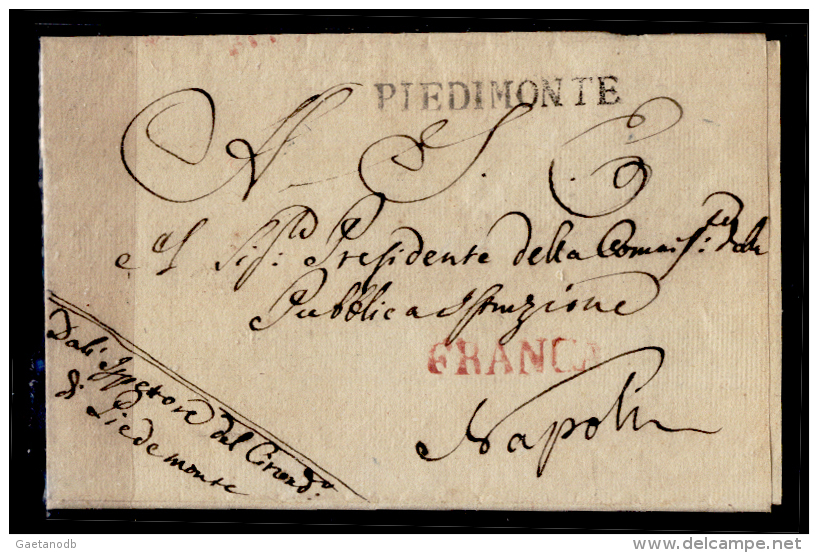 PIEDIMONTE
A. S. E.
Al Sig.r Presidente della Commiss.ne della
Pubblica Istruzione
FRANCA
Napoli
Dall' Ispettore del Circond.o
di Piedemonte
Gaetanodb
www.delcampe.net